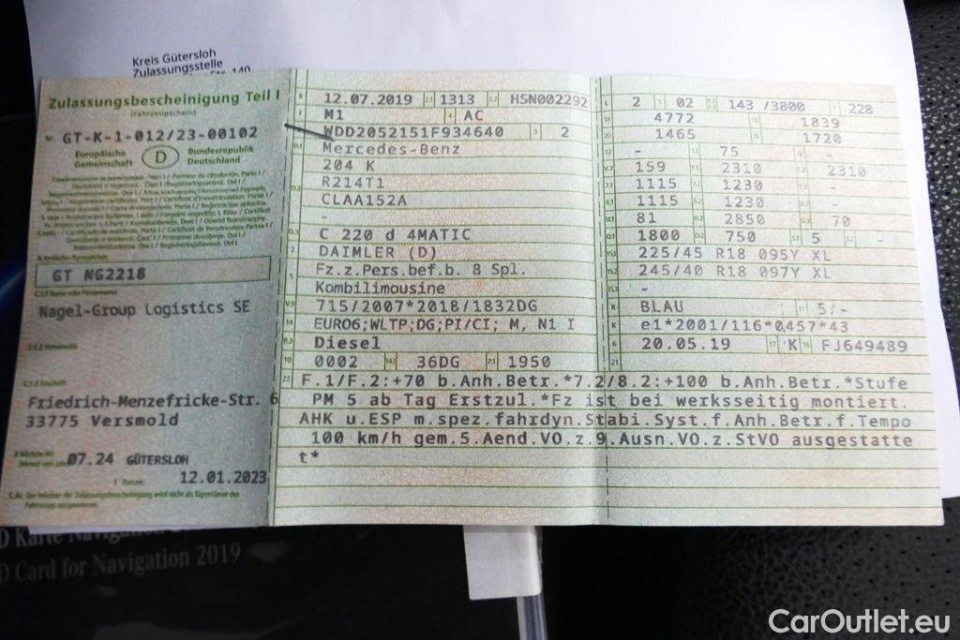 Kreis Gütersloh
Zulassungsstelle
Zulassungsbescheinigung Teil I
(Fahrzeugschein)
Nr. GT-K-1-012/23-00102
Europäische Gemeinschaft
D
Bundesrepublik Deutschland
GT NG2218
Nagel-Group Logistics SE
Friedrich-Menzefricke-Str. 6
33775 Versmold
07.24 GÜTERSLOH
12.01.2023
12.07.2019 1313 HSN002292
M1 AC
WDD2052151F934640 2
Mercedes-Benz
204 K
R214T1
CLAA152A
-
C 220 d 4MATIC
DAIMLER (D)
Fz.z.Pers.bef.b. 8 Spl.
Kombilimousine
715/2007*2018/1832DG
EURO6;WLTP;DG;PI/CI; M, N1 I
Diesel
0002 36DG 1950
2 02 143 /3800 228
4772 1839
1465 1720
- 75 -
159 2310 2310
1115 1230 -
1115 1230 -
81 2850 70
1800 750 5 -
225/45 R18 095Y XL
245/40 R18 097Y XL
-
BLAU 5/-
e1*2001/116*0457*43
20.05.19 K FJ649489
F.1/F.2:+70 b.Anh.Betr.*7.2/8.2:+100 b.Anh.Betr.*Stufe
PM 5 ab Tag Erstzul.*Fz ist bei werksseitig montiert.
AHK u.ESP m.spez.fahrdyn.Stabi.Syst.f.Anh.Betr.f.Tempo
100 km/h gem.5.Aend.VO.z.9.Ausn.VO.z.StVO ausgestatte
t*
D Karte Navigation
D Card for Navigation 2019
CarOutlet.eu